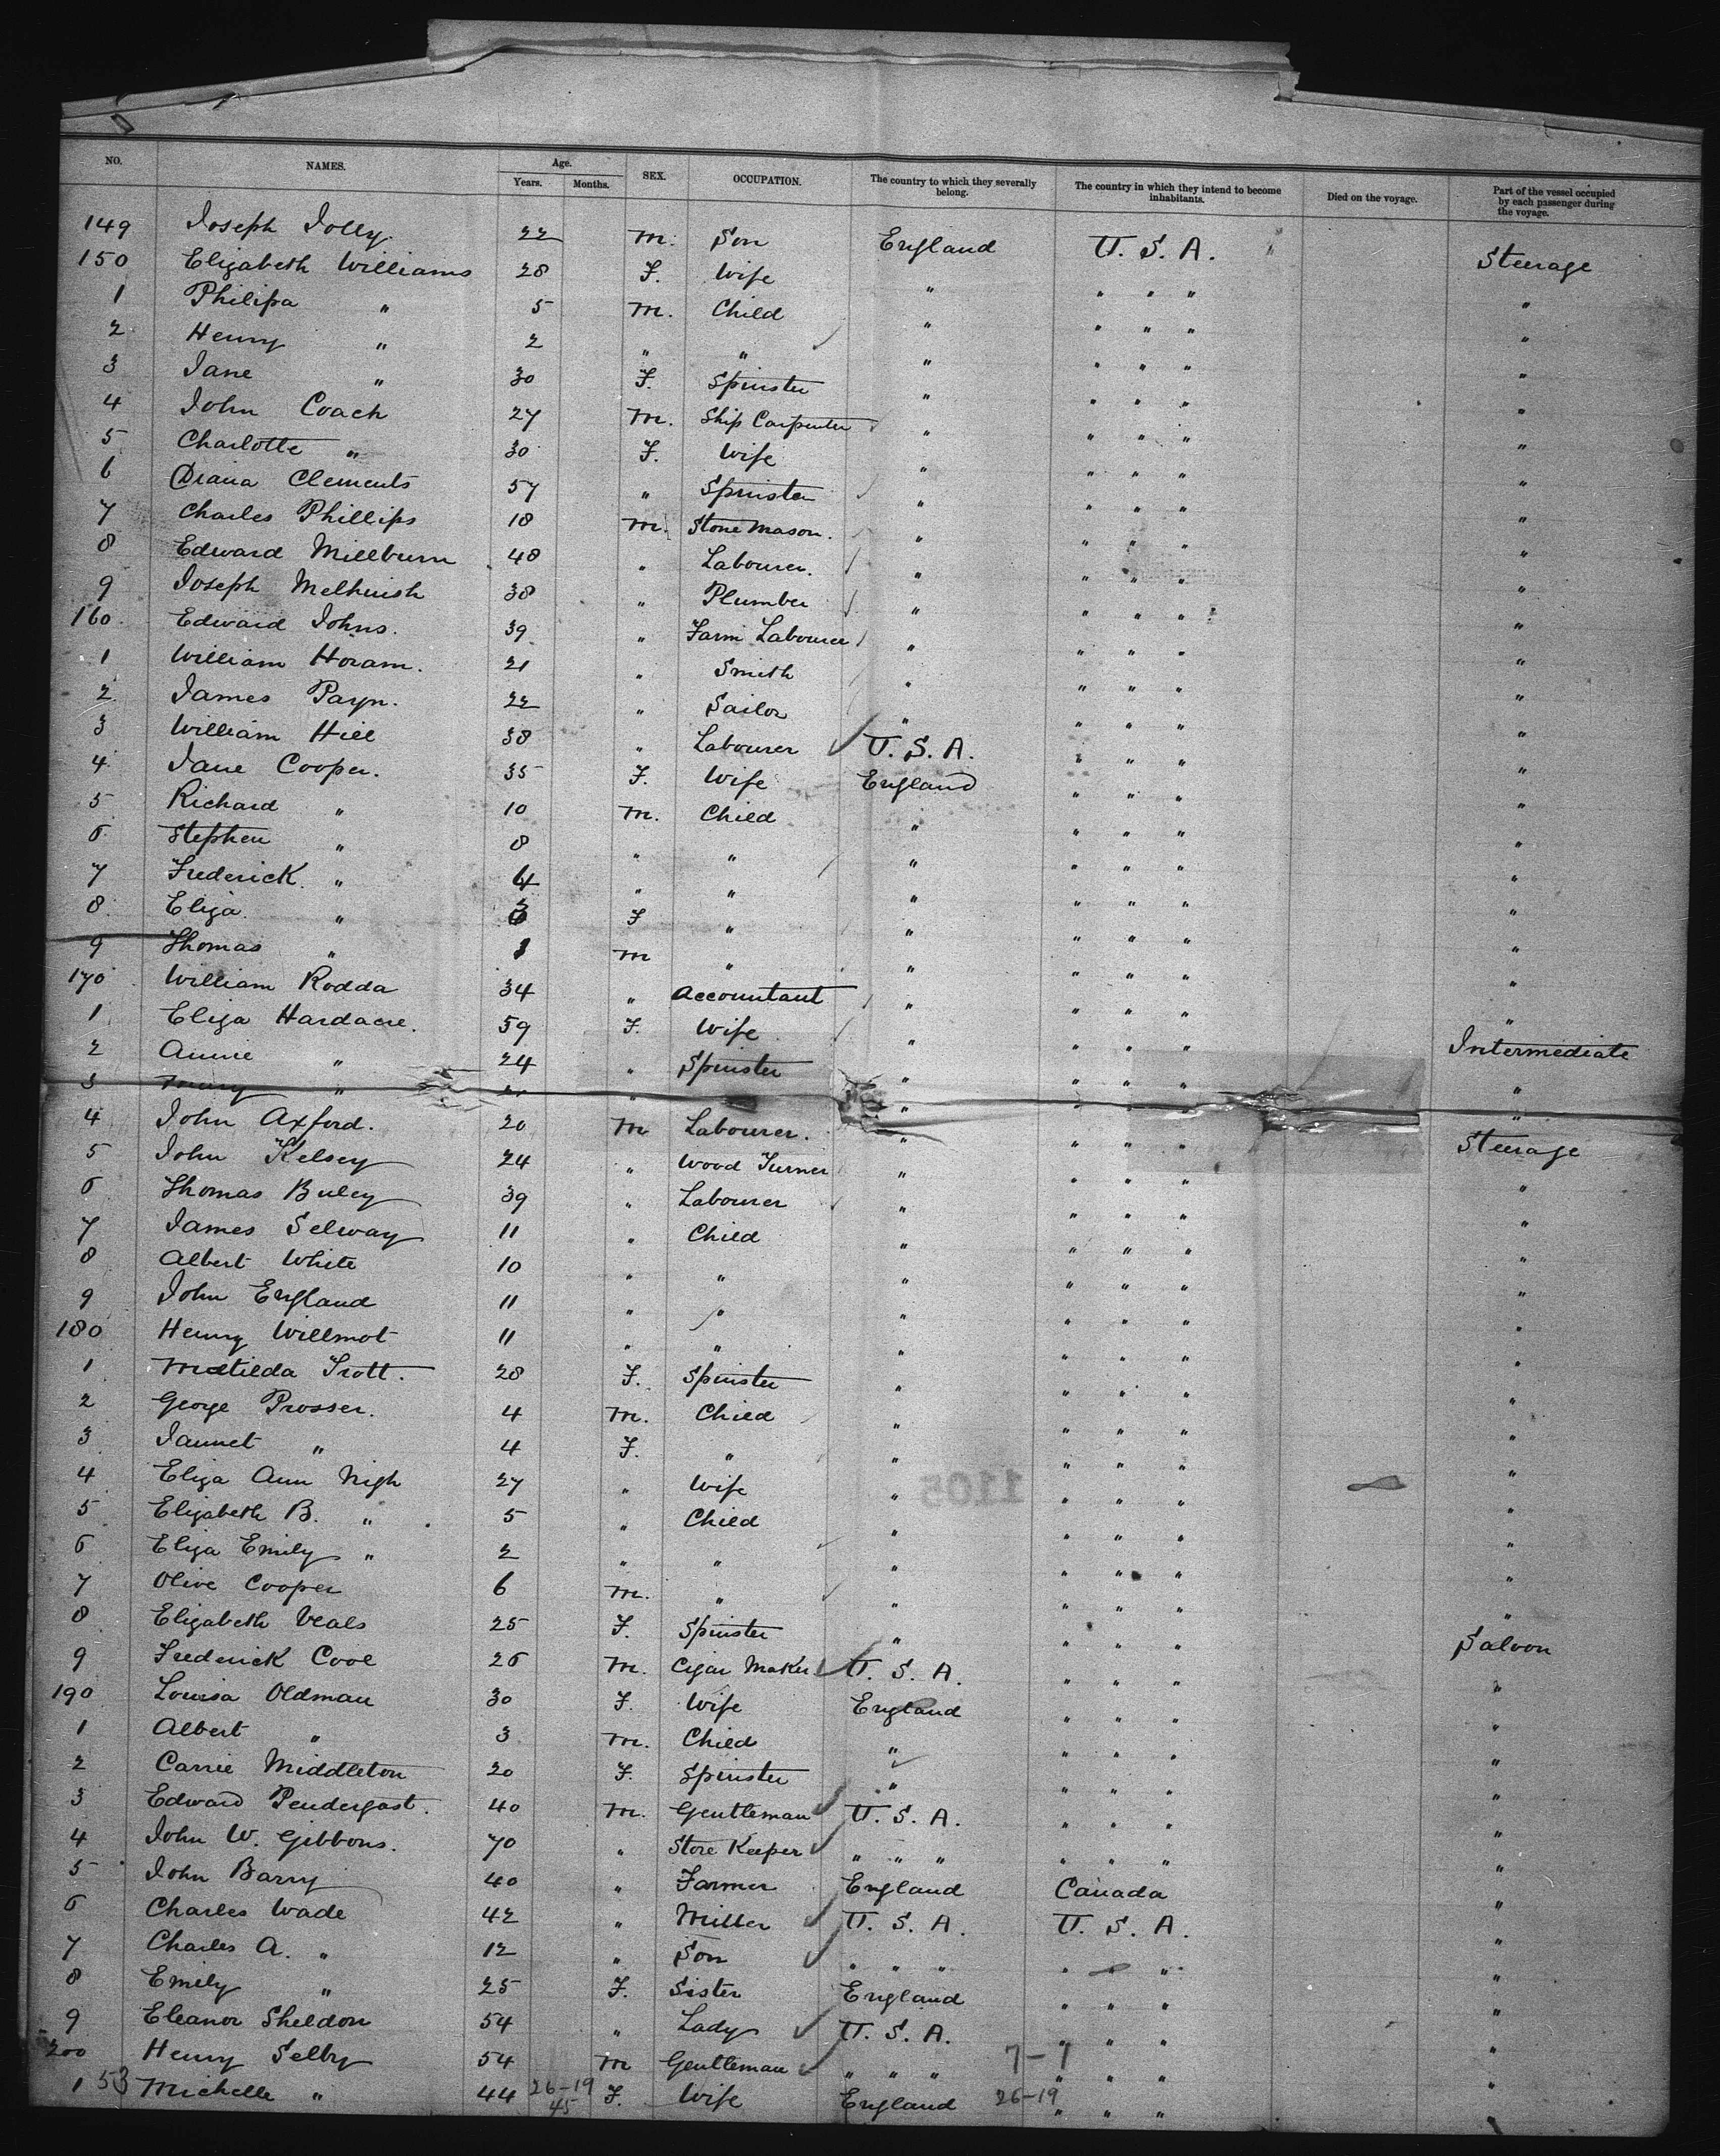 NO. NAMES. Age. Years. Months. SEX. OCCUPATION. The country to which they severally belong. The country in which they intend to become inhabitants. Died on the voyage. Part of the vessel occupied by each passenger during the voyage.
149 Joseph Jolly. 22 M. Son England U. S. A. Steerage
150 Elizabeth Williams 28 F. Wife " " " " "
1 Philipa " 5 M. Child " " " " "
2 Henry " 2 " " " " " " "
3 Jane " 30 F. Spinster " " " " "
4 John Coach 27 M. Ship Carpenter " " " " "
5 Charlotte " 30 F. Wife " " " " "
6 Diana Clements 57 " Spinster " " " " "
7 Charles Phillips 18 M. Stone Mason. " " " " "
8 Edward Millburn 48 " Labourer. " " " " "
9 Joseph Melhuish 38 " Plumber " " " " "
160. Edward Johns. 39 " Farm Labourer " " " " "
1 William Horam. 21 " Smith " " " " "
2 James Payn. 22 " Sailor " " " " "
3 William Hill 38 " Labourer U. S. A. " " " "
4 Jane Cooper. 35 F. Wife England " " " "
5 Richard " 10 M. Child " " " " "
6 Stephen " 8 " " " " " " "
7 Frederick. " 4 " " " " " " "
8. Eliza " 3 F " " " " " "
9 Thomas " 1 M " " " " " "
170 William Rodda 34 " Accountant " " " " "
1 Eliza Hardacre. 59 F. Wife " " " " Intermediate
2 Annie " 24 " Spinster " " " " "
3 " " " " " " "
4 John Axford. 20 M Labourer. " " " " Steerage
5 John Kelsey 24 " Wood Turner " " " " "
6 Thomas Buley 39 " Labourer " " " " "
7 James Selway 11 " Child " " " " "
8 Albert White 10 " " " " " " "
9 John England 11 " " " " " " "
180 Henry Willmot 11 " " " " " " "
1 Matilda Trott. 28 F. Spinster " " " " "
2 George Prosser. 4 M. Child " " " " "
3 Jannet " 4 F. " " " " " "
4 Eliza Ann Nigh 27 " Wife " " " " "
5 Elizabeth B. " 5 " Child " " " " "
6 Eliza Emily " 2 " " " " " " "
7 Olive Cooper 6 M. " " " " " "
8 Elizabeth Veals 25 F. Spinster " " " " Saloon
9 Frederick Cove 26 M. Cigar Maker U. S. A. " " " "
190 Louisa Oldman 30 F. Wife England " " " "
1 Albert " 3 M. Child " " " " "
2 Carrie Middleton 20 F. Spinster " " " " "
3 Edward Pendergast. 40 M. Gentleman U. S. A. " " " "
4 John W. Gibbons. 70 " Store Keeper " " " " " " "
5 John Barry 40 " Farmer England Canada "
6 Charles Wade 42 " Miller U. S. A. U. S. A. "
7 Charles A. " 12 " Son " " " " " "
8 Emily " 25 F. Sister England " " " "
9 Eleanor Sheldon 54 " Lady U. S. A. " " " "
200 Henry Selby 54 M Gentleman " " " 7-1 " " " "
1 53 Michelle " 44 26-19 45 F. Wife England 26-19 " " " "
1105